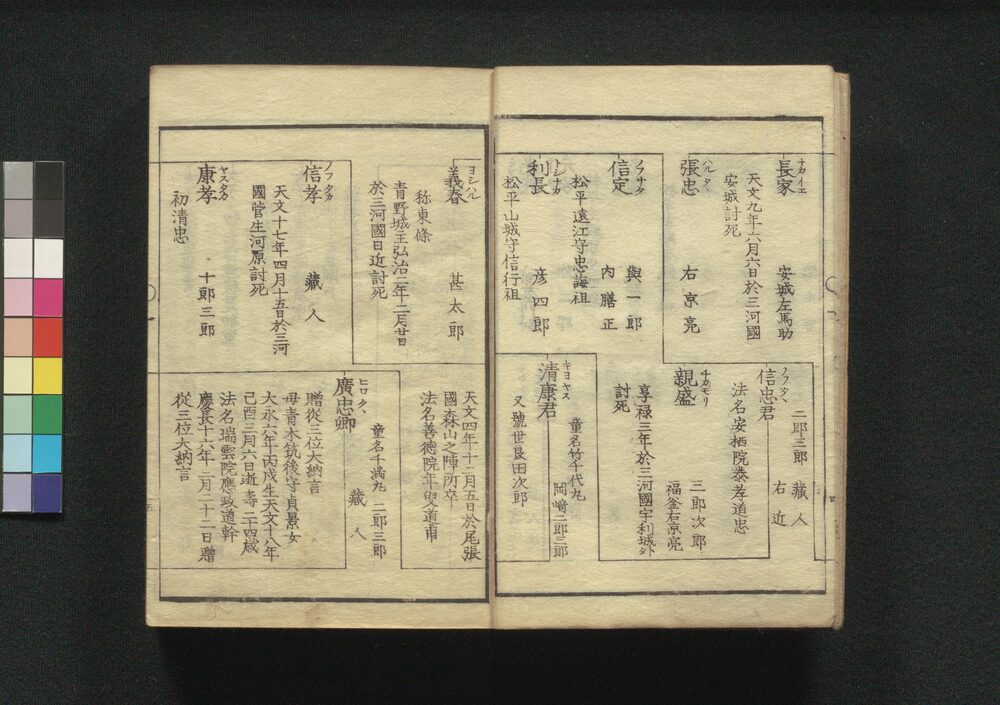 長家 ナカイエ 安城左馬助
天文九年六月六日於三河國
安城討死
張忠 ハルタヽ 右京亮
信定 ノフサタ 與一郎
内膳正
松平遠江守忠誨祖
利長 トシナカ 彦四郎
松平山城守信行祖
二郎三郎 藏人
信忠君 ノフタヽ 右近
法名安栖院泰孝道忠
親盛 チカモリ 三郎次郎
福釜右京亮
享禄三年於三河國宇利城外
討死
清康君 キヨヤス 岡﨑二郎三郎
童名竹千代九
又號世良田次郎
義春 ヨシハル 甚太郎
称東條
青野城主弘治二年二月廿日
於三河國日近討死
信孝 ノフタカ 藏人
天文十七年四月十五日於三河
國菅生河原討死
康孝 ヤスタカ 十郎三郎
初清忠
天文四年十二月五日於尾張
國森山之陣所卒
法名善德院年叟道甫
廣忠卿 ヒロタヽ 藏人
童名千満丸 二郎三郎
贈從三位大納言
母青木筑後守貞景女
大永六年丙戌生天文十八年
己酉三月六日逝壽二十四歳
法名瑞雲院應政道幹
慶長十六年三月二十二日贈
從三位大納言